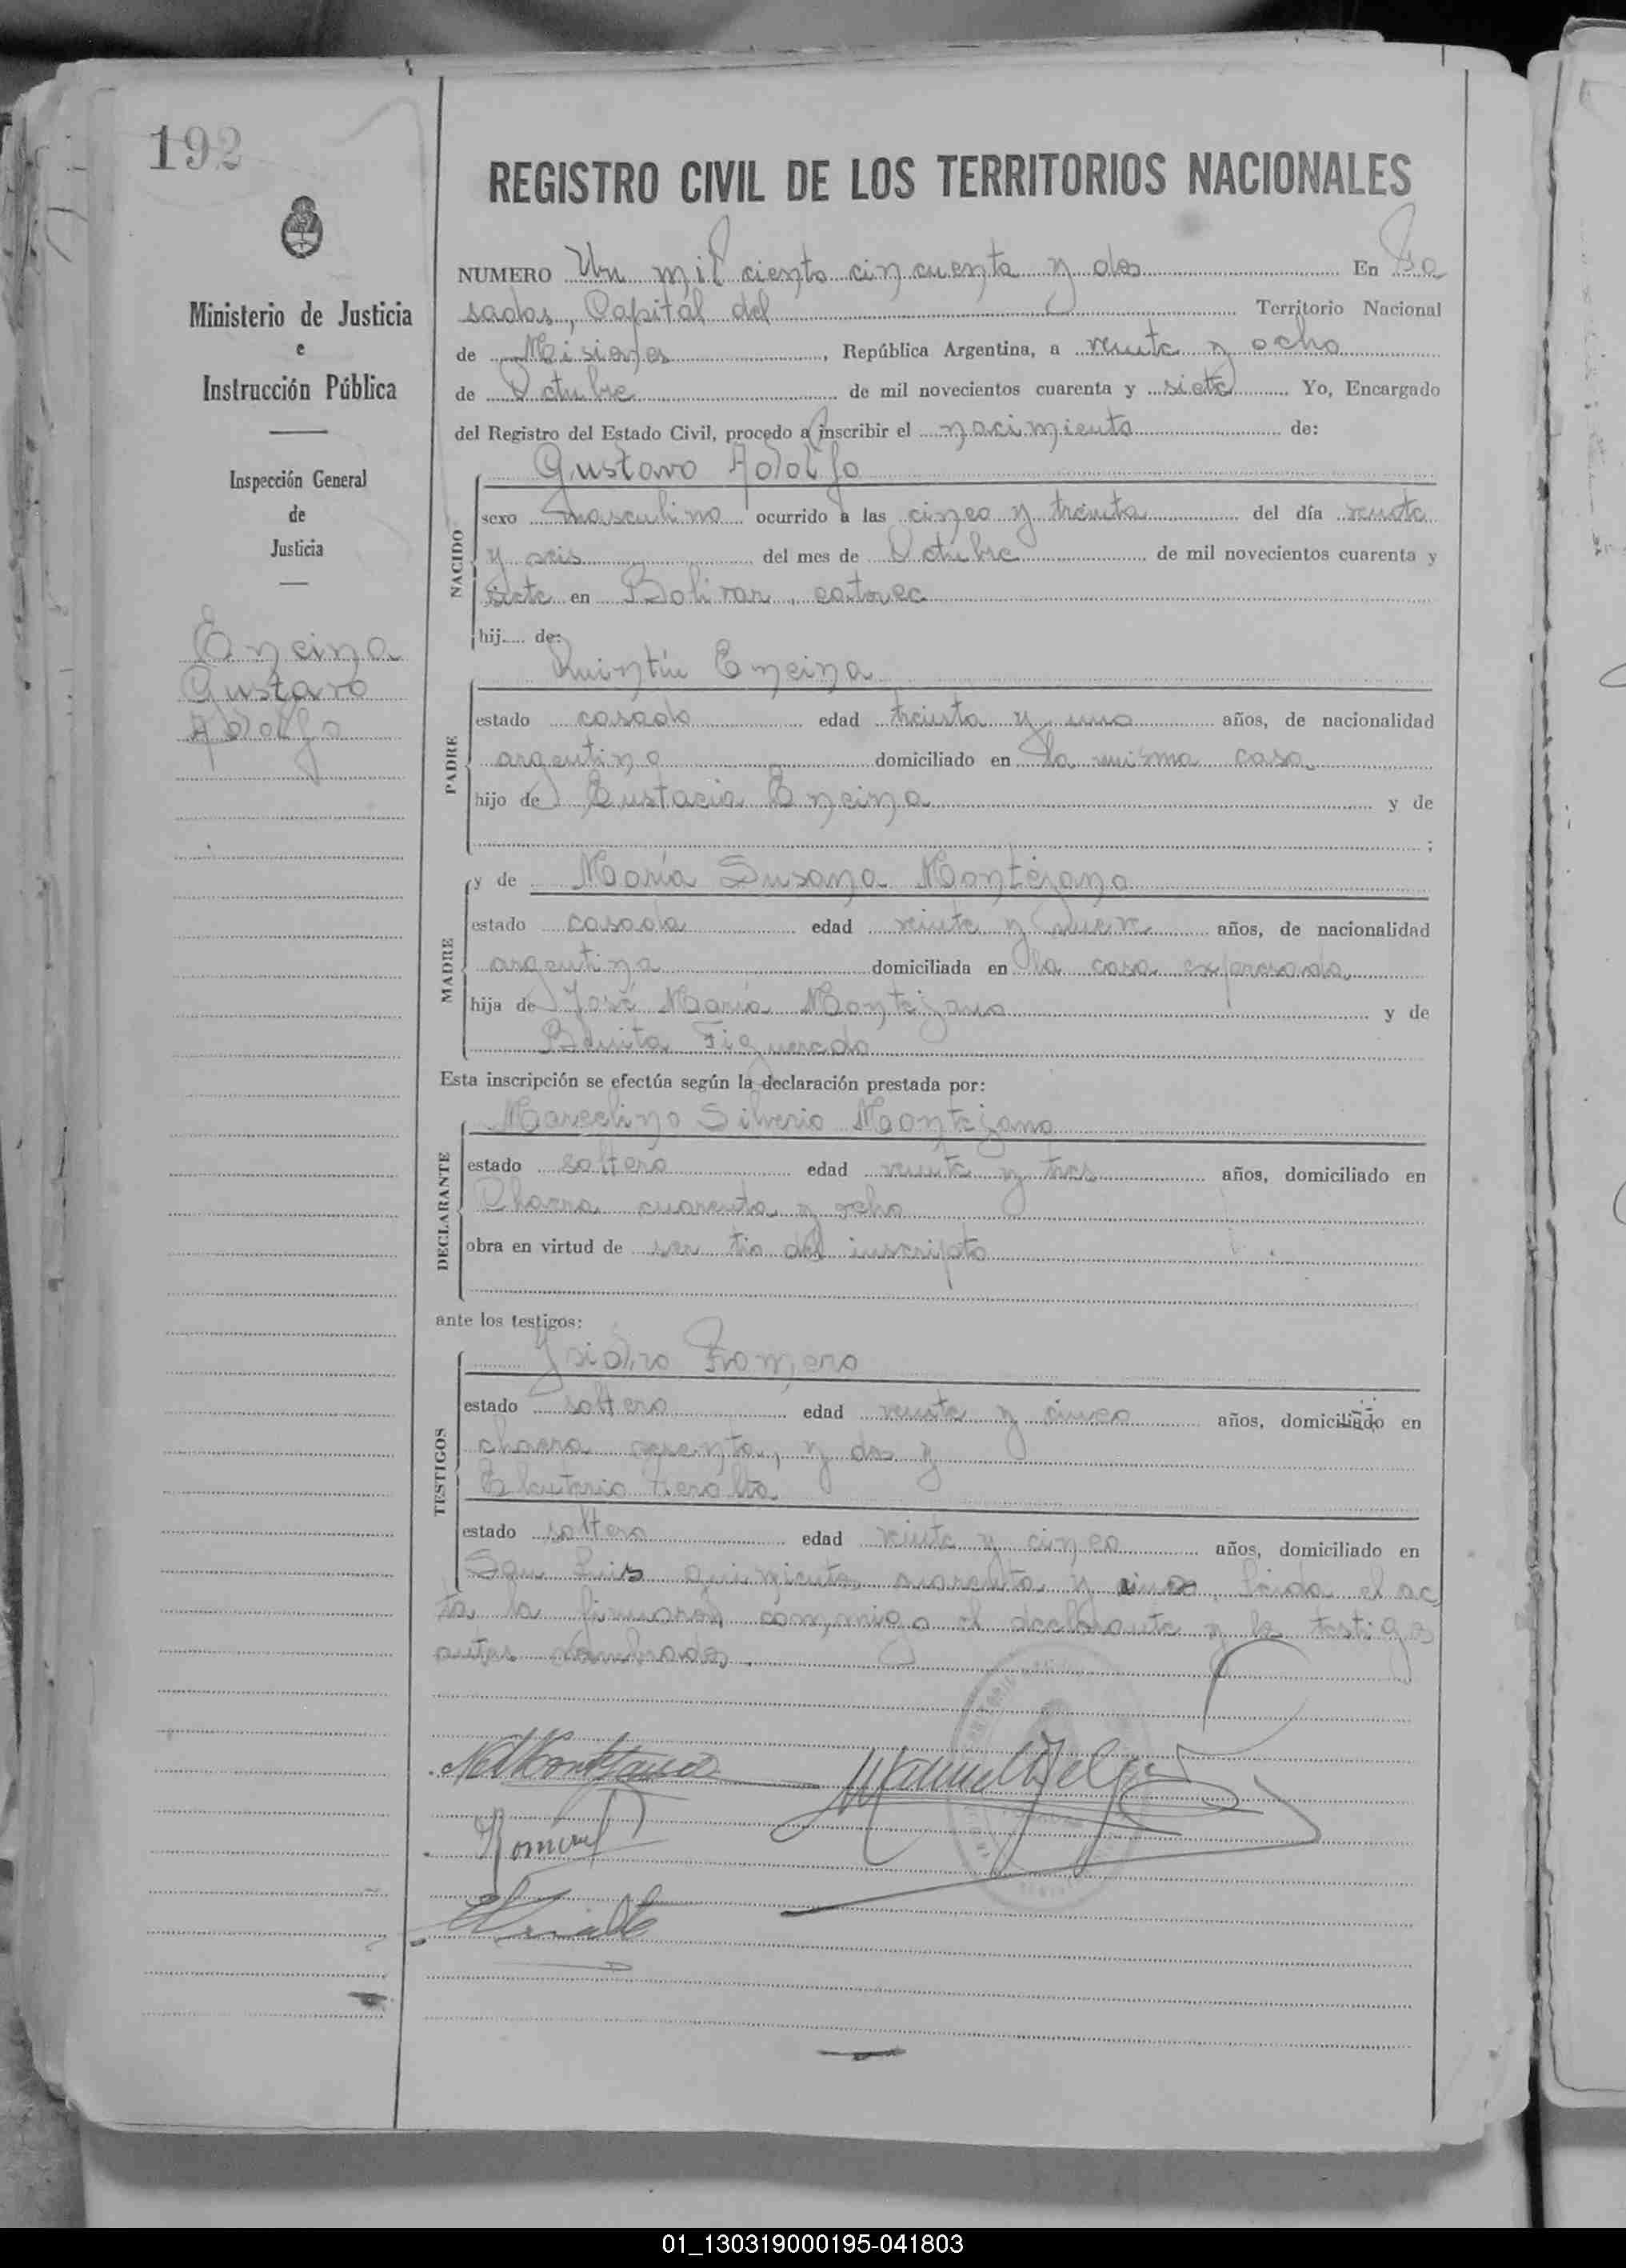 192
REGISTRO CIVIL DE LOS TERRITORIOS NACIONALES
Ministerio de Justicia
e
Instrucción Pública
Inspección General
de
Justicia
Encina
Gustavo
Adolfo
NUMERO Un mil ciento cincuenta y dos En Po
sadas, Capital del Territorio Nacional
de Misiones, República Argentina, a veinte y ocho
de Octubre de mil novecientos cuarenta y siete Yo, Encargado
del Registro del Estado Civil, procedo a inscribir el nacimiento de:
NACIDO
Gustavo Adolfo
sexo masculino ocurrido a las cinco y treinta del día veinte
y seis del mes de Octubre de mil novecientos cuarenta y
siete en Bolivar, catorce
hij de:
PADRE
Quintín Encina
estado casado edad treinta y uno años, de nacionalidad
argentino domiciliado en la misma casa,
hijo de Eustacia Encina y de
;
MADRE
y de María Susana Montejano
estado casada edad veinte y nueve años, de nacionalidad
argentina domiciliada en la casa expresada,
hija de José María Montejano y de
Figueredo
Esta inscripción se efectúa según la declaración prestada por:
DECLARANTE
Marcelino Silverio Montejano
estado soltero edad veinte y tres años, domiciliado en
Chacra cuarenta y ocho
obra en virtud de ser tio del inscripto
ante los testigos:
TESTIGOS
Ysidro Romero
estado soltero edad veinte y cinco años, domiciliado en
chacra y dos y
Eleuterio Peralta
estado soltero edad veinte y cinco años, domiciliado en
San Luis quinientos cuarenta y uno. Leida el ac
ta la firmaron conmigo el declarante y los testigos
antes nombrados.
Romero
01_130319000195-041803